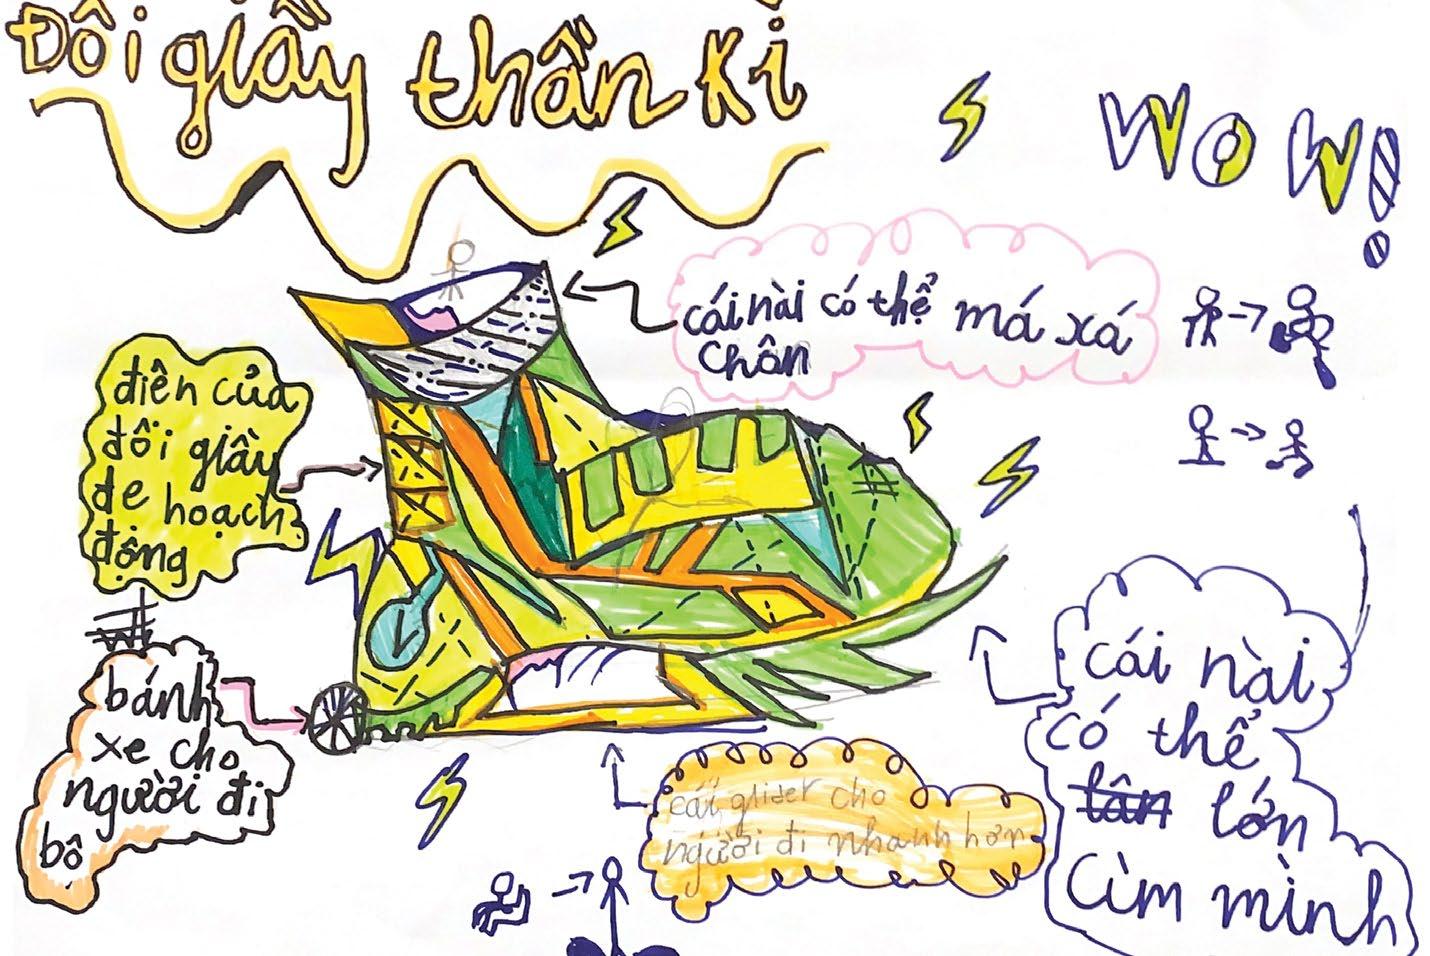 Đôi giầy thần Kì
WOW!
cái nài có thể má xá
chân
điên của
đôi giầy
đe hoạch
động
bánh
xe cho
người đi
bô
cái glider cho
người đi nhanh hơn
cái nài
có thể
lớn
cùm mình